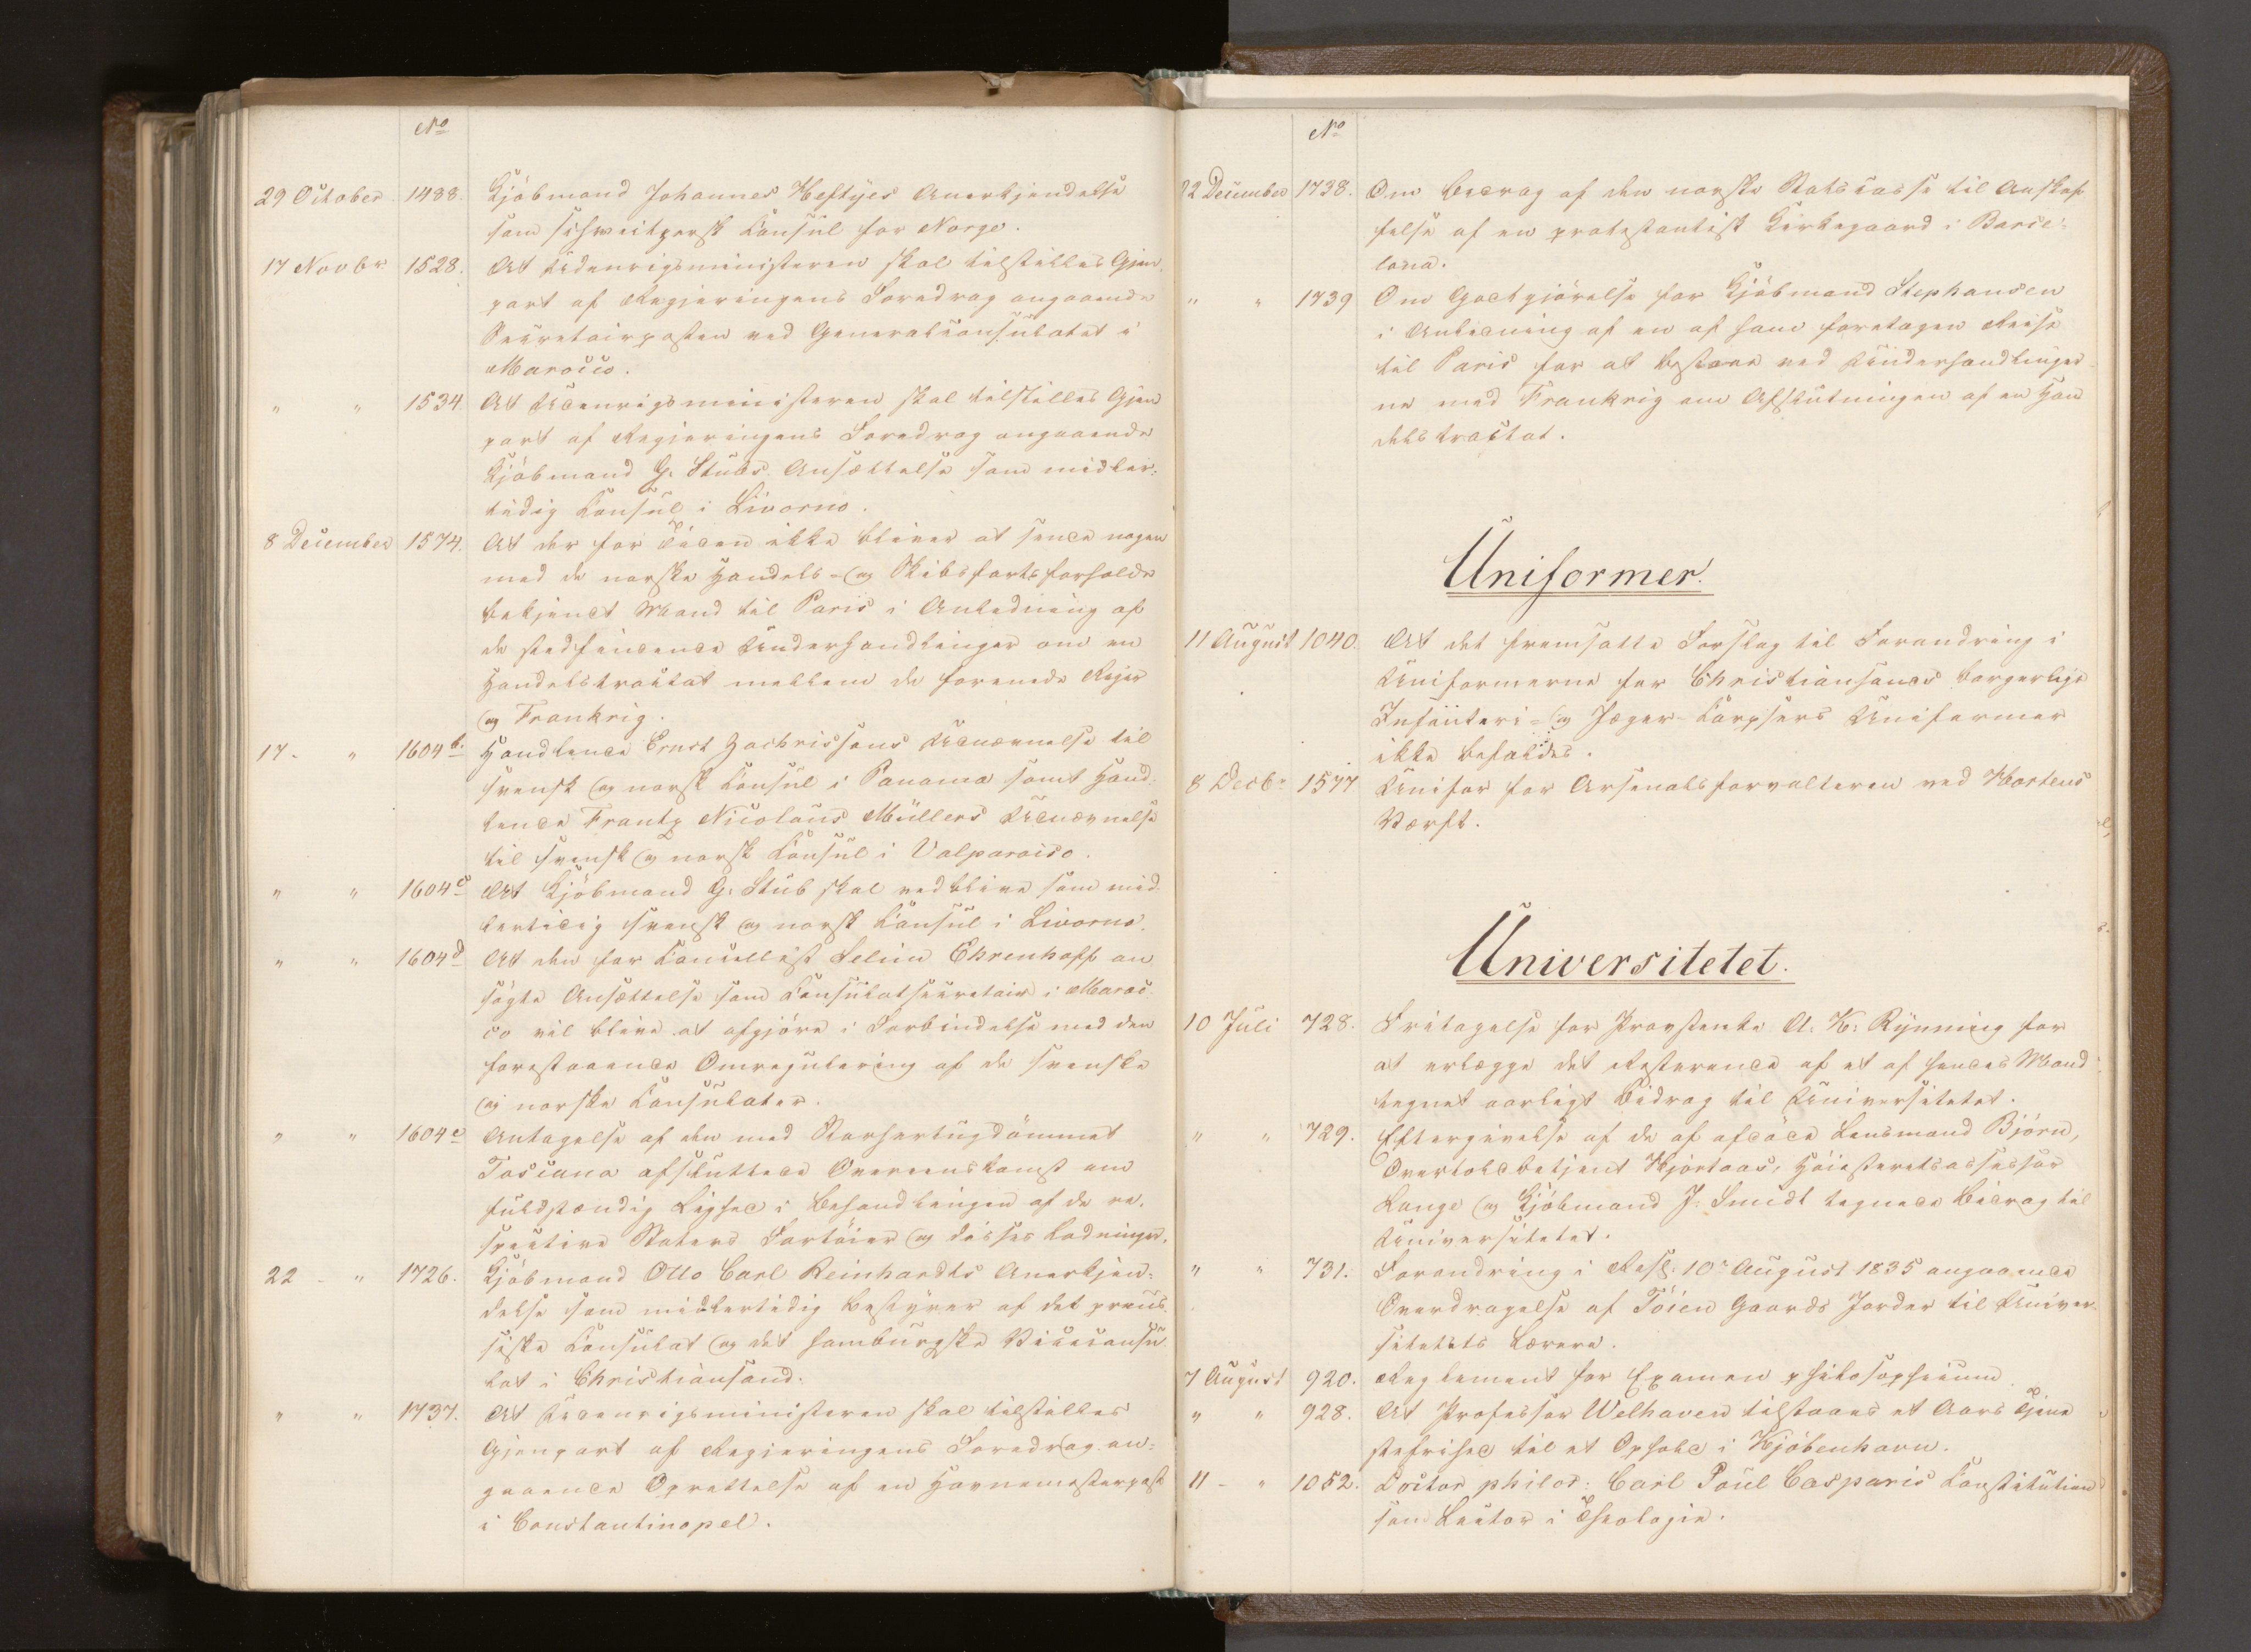 No
29 October 1488. Kjöbmand Johannes Heftyes Anerkjendelse
som schweitzersk Consul for Norge.
17 Novbr 1528. At Udenrigsministeren skal tilstilles Gjen
part af Regjeringens Foredrag angaaende
Secretairposten ved Generalconsulatet i
Marocco.
" " 1534. At Udenrigsministeren skal tilstilles Gjen
part af Regjeringens Foredrag angaaende
Kjöbmand G. Stubs Ansættelse som midler:
tidig Consul i Livorno.
8 December 1574. At der for Tiden ikke bliver at sende nogen
med de norske Handels- og Skibsfartsforholde
bekjendt Mand til Paris i Anledning af
de stedfindende Underhandlinger om en
Handelstractat mellem de forenede Riger
og Frankrig.
17 - " 1604 b. Handlende Ernst Zachrissons Udnævnelse til
svensk og norsk Consul i Panama samt Hand:
lende Frantz Nicolaus Müllers Udnævnelse
til svensk og norsk Consul i Valparaiso.
" " 1604 c At Kjöbmand G. Stub skal vedblive som mid
lertidig svensk og norsk Consul i Livorno.
" " 1604 d At den for Cancellist Selim Ehrenhoff an
søgte Ansættelse som Consulatsecretair i Maroc
co vil blive at afgjöre i Forbindelse med den
forestaaende Omregulering af de svenske
og norske Consulater.
" " 1604 e Antagelse af den med Storhertugdömmet
Toscana afsluttede Overeenskomst om
fuldstændig Lighed i Behandlingen af de re,
spective Staters Fartöier og disses Ladninger.
22 - " 1726. Kjöbmand Otto Carl Reinhardts Anerkjen:
delse som midlertidig Bestyrer af det preus
siske Consulat og det hamburgske Viceconsu
lat i Christiansand.
" " 1737. At Udenrigsministeren skal tilstilles
Gjenpart af Regjeringens Foredrag an:
gaaende Oprettelse af en Havnemesterpost
i Constantinopel.
No
22 December 1738. Om Bidrag af den norske Statscasse til Anskaf
felse af en protestantisk Kirkegaard i Barce:
lona.
" " 1739 Om Godtgjörelse for Kjöbmand Stephansen
i Anledning af en af ham foretagen Reise
til Paris for at bistaae ved Underhandlinger
ne med Frankrig om Afslutningen af en Han
delstractat.
Uniformer.
11 August 1040. At det fremsatte Forslag til Forandring i
Uniformerne for Christiansands borgerlige
Infanteri- og Jæger-Corpsers Uniformer
ikke befaldes.
8 Decbr 1577 Unifor for Arsenalsforvalteren ved Hortens
Værft.
Universitetet.
10 Juli 728. Fritagelse for Provstenke A. K. Rynning for
at erlægge det Resterende af et af hendes Mand
tegnet aarligt Bidrag til Universitetet.
" " 729. Eftergivelse af de af afdöde Lensmand Björn,
Overtoldbetjent Hjortaas, Höiesteretsassessor
Lange og Kjöbmand J. Smidt tegnede Bidrag til
Universitetet.
" " 731. Forandring i Resl: 10r August 1835 angaaende
Overdragelse af Töien Gaards Jorder til Univer
sitetets Lærere.
7 August 920. Reglement for Examen philosophicum
" " 928. At Professor Welhaven tilstaaes et Aars Tjene
stefrihed til et Ophold i Kjöbenhavn.
11 - " 1052. Doctor philos: Carl Poul Casparis Constitution
som Lector i Theologie.